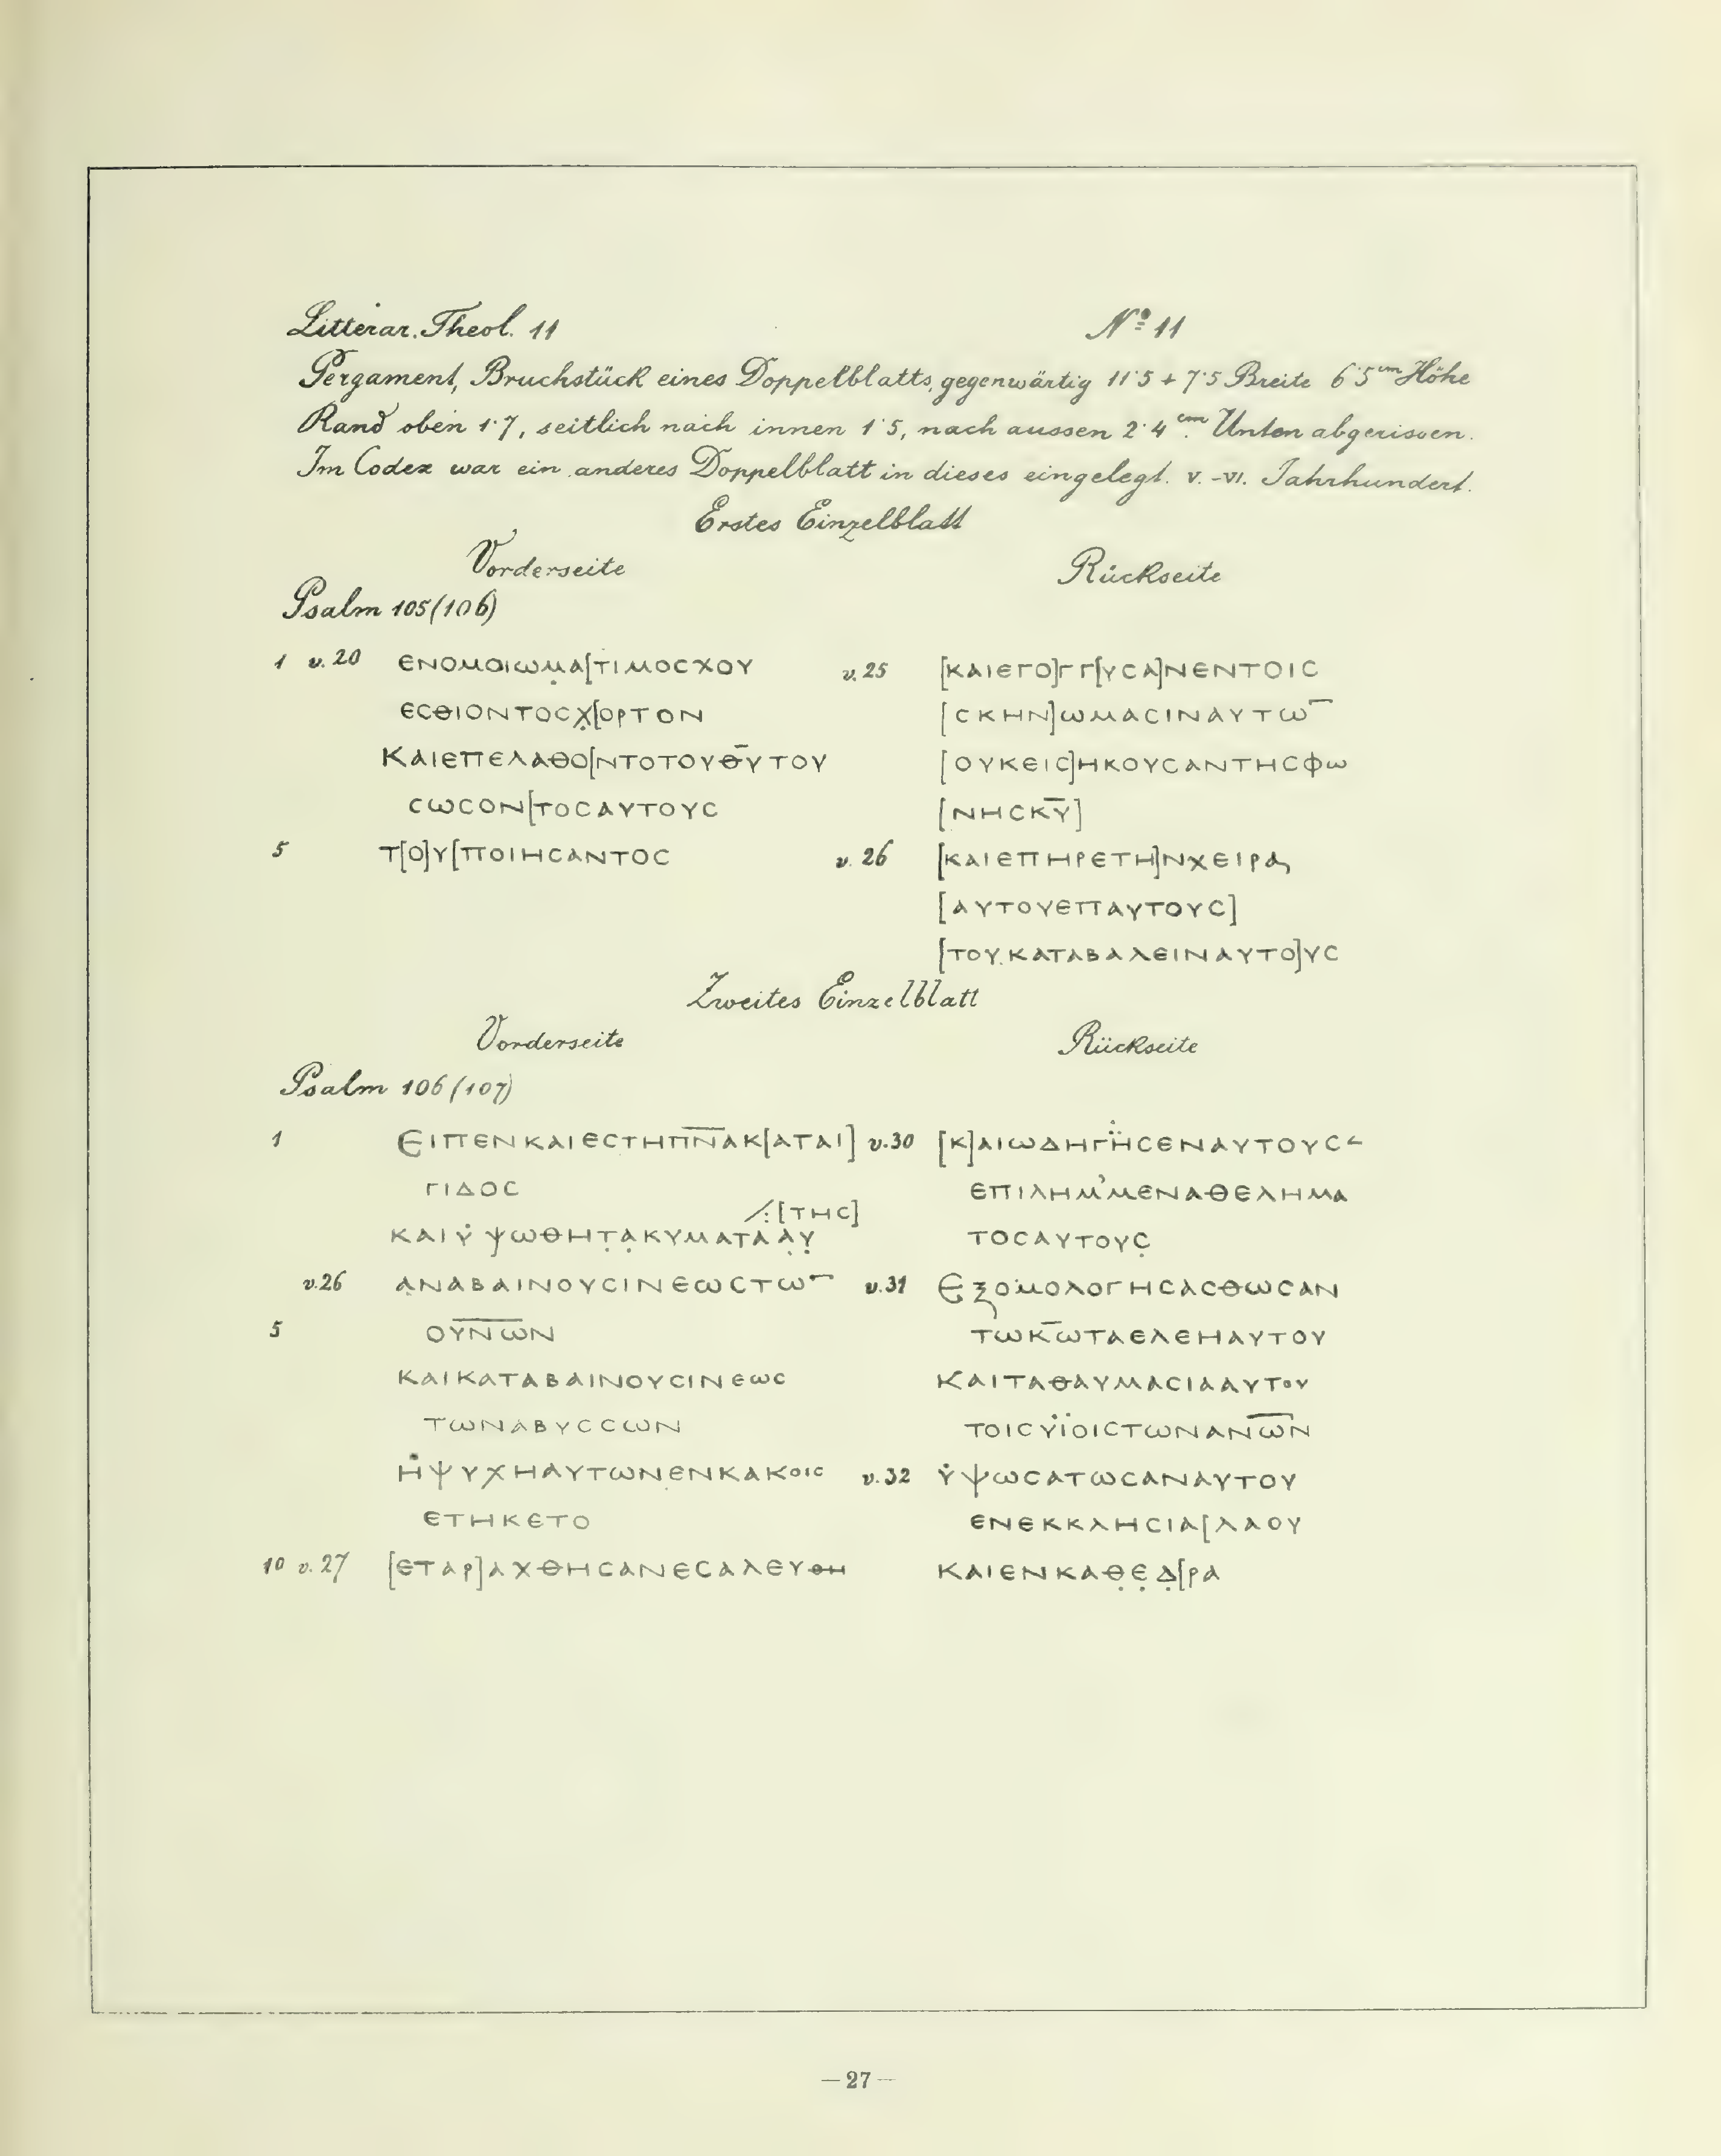 Litterar. Theol. 11
Nº 11
Pergament, Bruchstück eines Doppelblatts, gegenwärtig 11·5 + 7·5 Breite 6·5 cm Höhe
Rand oben 1·7, seitlich nach innen 1·5, nach aussen 2·4 cm. Unten abgerissen.
Im Codex war ein anderes Doppelblatt in dieses eingelegt. V.-VI. Jahrhundert.
Erstes Einzelblatt
Vorderseite
Psalm 105(106)
1 v. 20 ΕΝΟΜΟΙΩΜ̣Α[ΤΙΜΟϹΧΟΥ
ΕϹΘΙΟΝΤΟϹΧ̣[ΟΡΤΟΝ
ΚΑΙΕΠΕΛΑΘΟ[ΝΤΟΤΟΥΘ̅ΥΤΟΥ
ϹΩϹΟΝ[ΤΟϹΑΥΤΟΥϹ
5 Τ[Ο]Υ[ΠΟΙΗϹΑΝΤΟϹ
Rückseite
v. 25 [ΚΑΙΕΓΟ]ΓΓ[ΥϹΑ]ΝΕΝΤΟΙϹ
[ϹΚΗΝ]ΩΜΑϹΙΝΑΥΤΩ¯
[ΟΥΚΕΙϹ]ΗΚΟΥϹΑΝΤΗϹΦΩ
[ΝΗϹΚ̅Υ̅]
v. 26 [ΚΑΙΕΠΗΡΕΤΗ]ΝΧΕΙΡΑ
[ΑΥΤΟΥΕΠΑΥΤΟΥϹ]
[ΤΟΥΚΑΤΑΒΑΛΕΙΝΑΥΤΟ]ΥϹ
Zweites Einzelblatt
Vorderseite
Psalm 106(107)
1 ΕΙΠΕΝΚΑΙΕϹΤΗΠ̅Ν̅ΑΚ[ΑΤΑΙ]
ΓΙΔΟϹ
⁄.[ΤΗϹ]
ΚΑΙΥ̇ΨΩΘΗΤ̣Α̣ΚΥΜΑΤΑΑ̣Υ̣
v. 26 Α̣ΝΑΒΑΙΝΟΥϹΙΝΕΩϹΤΩ¯
5 ΟΥ̅Ν̅Ω̅Ν
ΚΑΙΚΑΤΑΒΑΙΝΟΥϹΙΝΕΩϹ
ΤΩΝΑΒΥϹϹΩΝ
Η̇ΨΥΧΗΑΥΤΩΝΕΝΚΑΚΟΙϹ
ΕΤΗΚΕΤΟ
10 v. 27 [ΕΤΑΡ]ΑΧΘΗϹΑΝΕϹΑΛΕΥΘΗ
Rückseite
v. 30 [Κ]ΑΙΩΔΗΓΗ̈ϹΕΝΑΥΤΟΥϹ<
ΕΠΙΛΗΜ'ΜΕΝΑΘΕΛΗΜΑ
ΤΟϹΑΥΤΟΥϹ̣
v. 31 ΕΞΟΜΟΛΟΓΗϹΑϹΘΩϹΑΝ
ΤΩΚ̅ΩΤΑΕΛΕΗΑΥΤΟΥ
ΚΑΙΤΑΘΑΥΜΑϹΙΑΑΥΤΟΥ
ΤΟΙϹΫΪΟΙϹΤΩΝΑΝ̅Ω̅Ν
v. 32 Υ̇ΨΩϹΑΤΩϹΑΝΑΥΤΟΥ
ΕΝΕΚΚΛΗϹΙΑ[ΛΑΟΥ
ΚΑΙΕΝΚΑΘ̣Ε̣Δ̣[ΡΑ
—27—